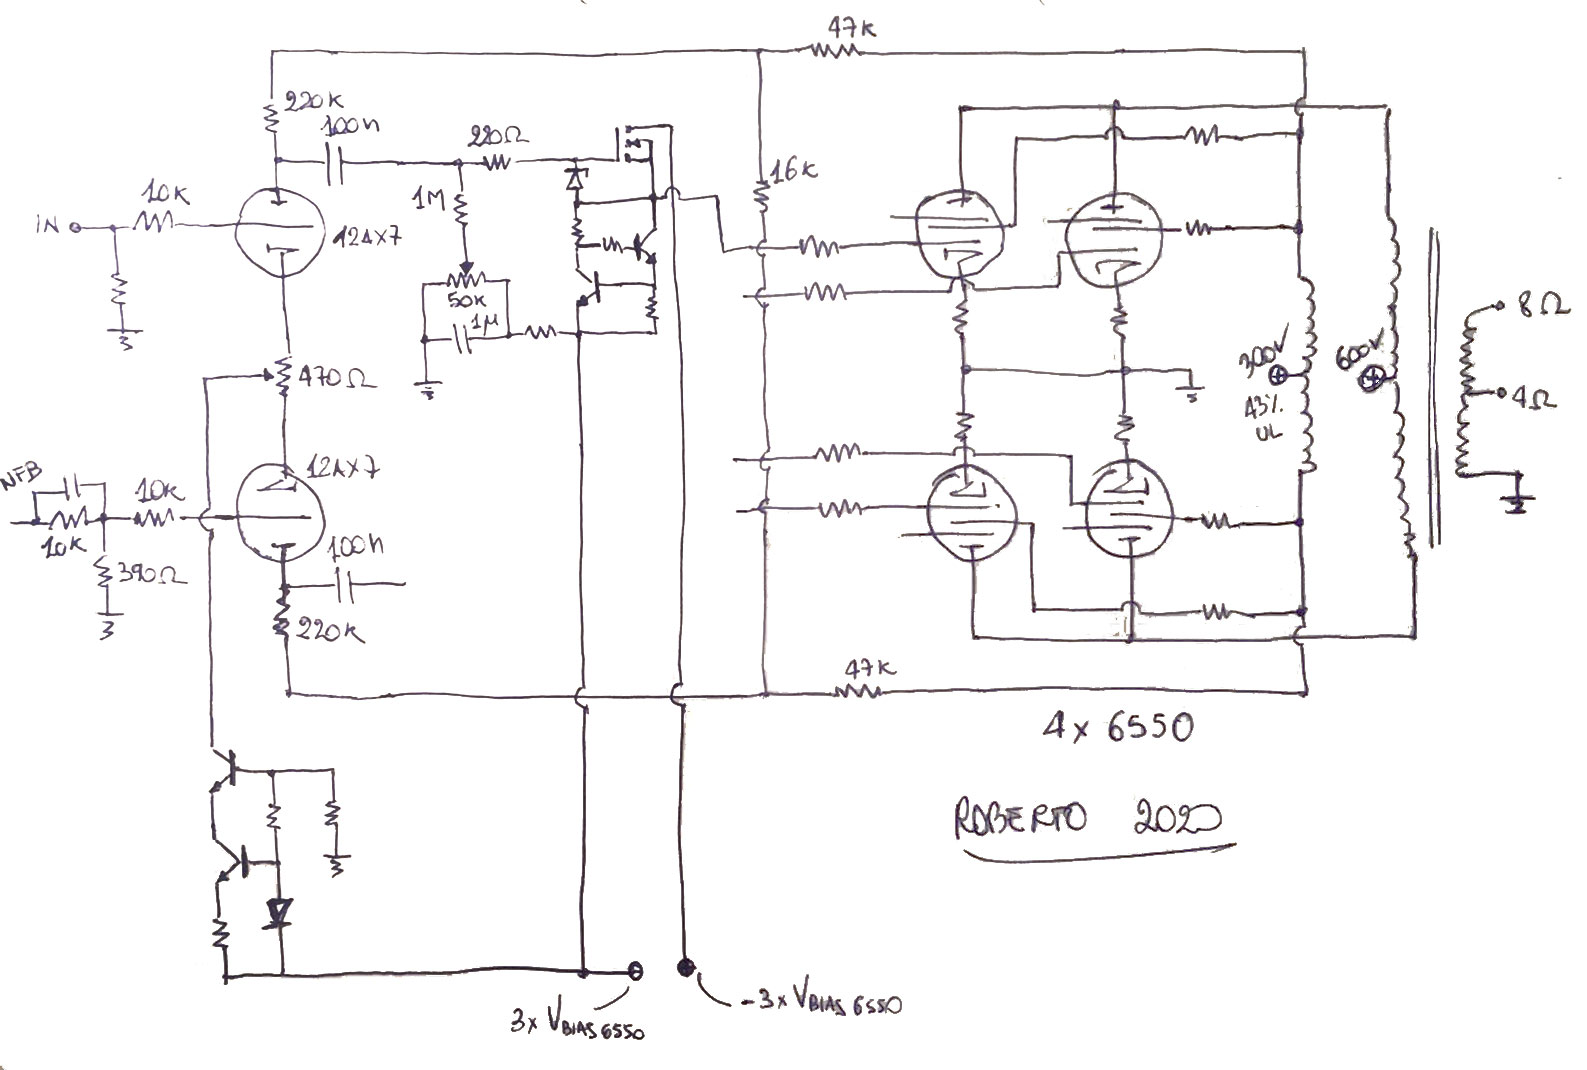 47K
220K
100n
220Ω
16K
10K
1M
IN
12AX7
50K
1µ
8Ω
300V
600V
470Ω
4Ω
43%
UL
12AX7
NFB
10K
100n
10K
390Ω
220K
47K
4x 6550
ROBERTO 2020
3x VBIAS 6550
-3x VBIAS 6550